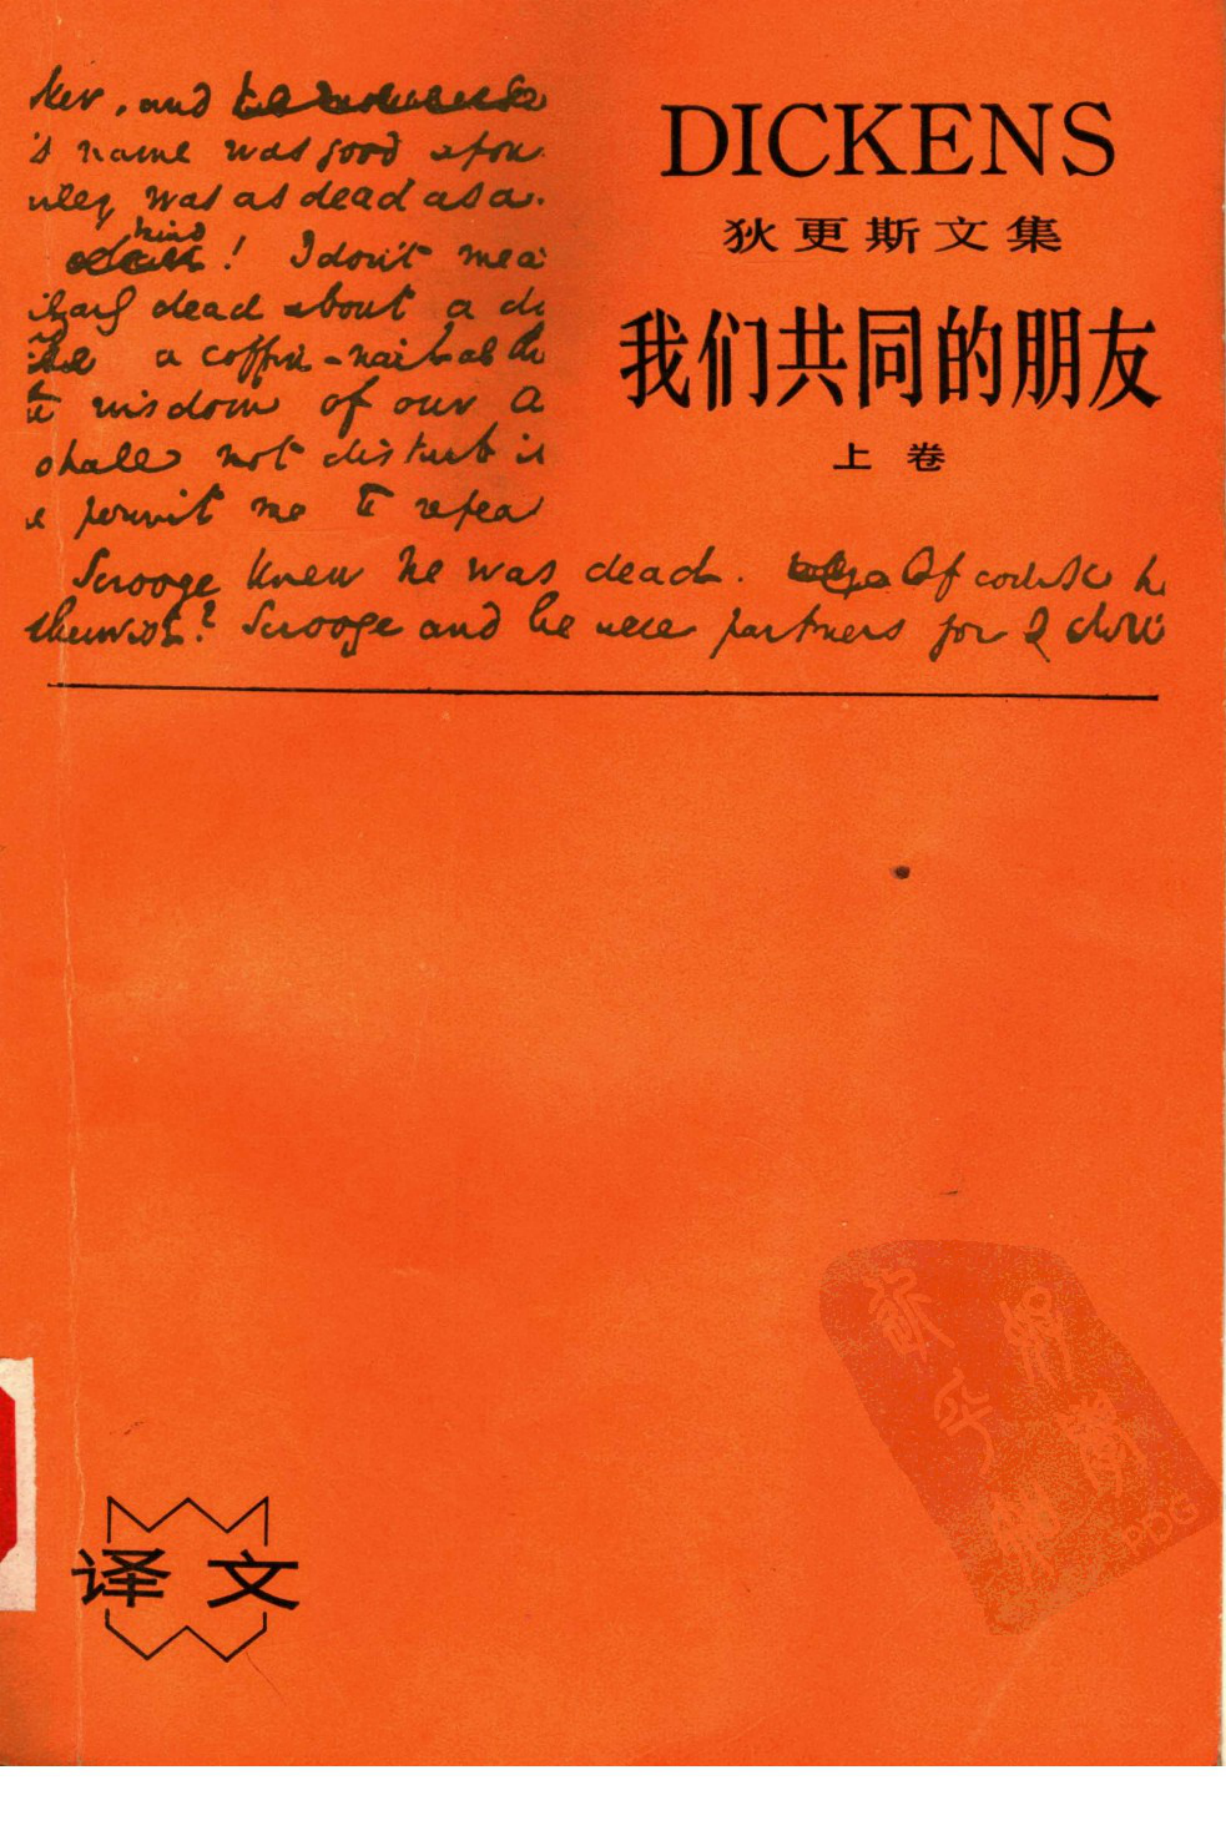 ker, and
's name was good upon
was as dead as a
kind
! I don't mea
dead about a
a coffin-nail as the
wisdom of our a
shall not disturb i
permit me to repea
Scrooge knew he was dead. Of course h
Scrooge and he were partners for I don't
DICKENS
狄更斯文集
我们共同的朋友
上卷
译文
PDG